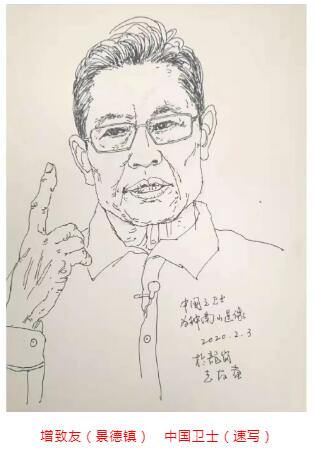 中国之卫士
为钟南山造像
2020.2.3
於龍岗
志友画
增致友（景德镇） 中国卫士（速写）